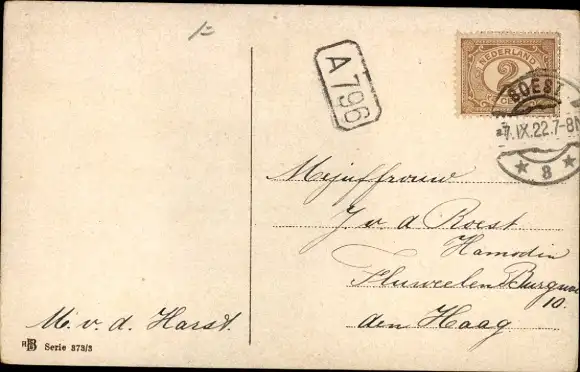 1=
A 796
NEDERLAND
2
SOEST
7.IX.22.7-8N
8
Mejuffrouw
J. v. d. Roest
Hamsdin
Fluweelen Burgw
10.
den Haag
M. v. d. Harst.
Serie 373/3